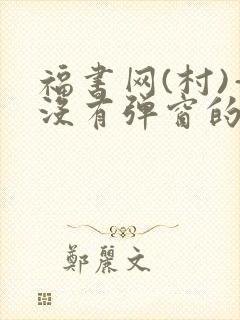 福书网(村)-
没有弹窗的
鄭麗文